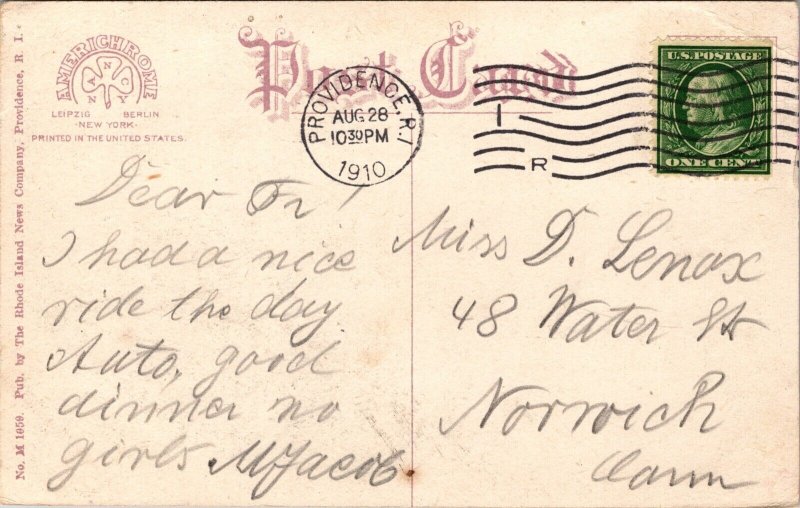 No. M 1059. Pub. by The Rhode Island News Company, Providence, R. I.
AMERICHROME
ANCNY
LEIPZIG BERLIN
-NEW YORK-
PRINTED IN THE UNITED STATES.
Post Card
PROVIDENCE, R.I.
AUG 28
10 30 PM
1910
I
R
U.S. POSTAGE
ONE CENT
Dear Fr!
I had a nice
ride the day
Auto, good
dinner no
girls MJacob
Miss D. Lenox
48 Water St
Norwich
Conn